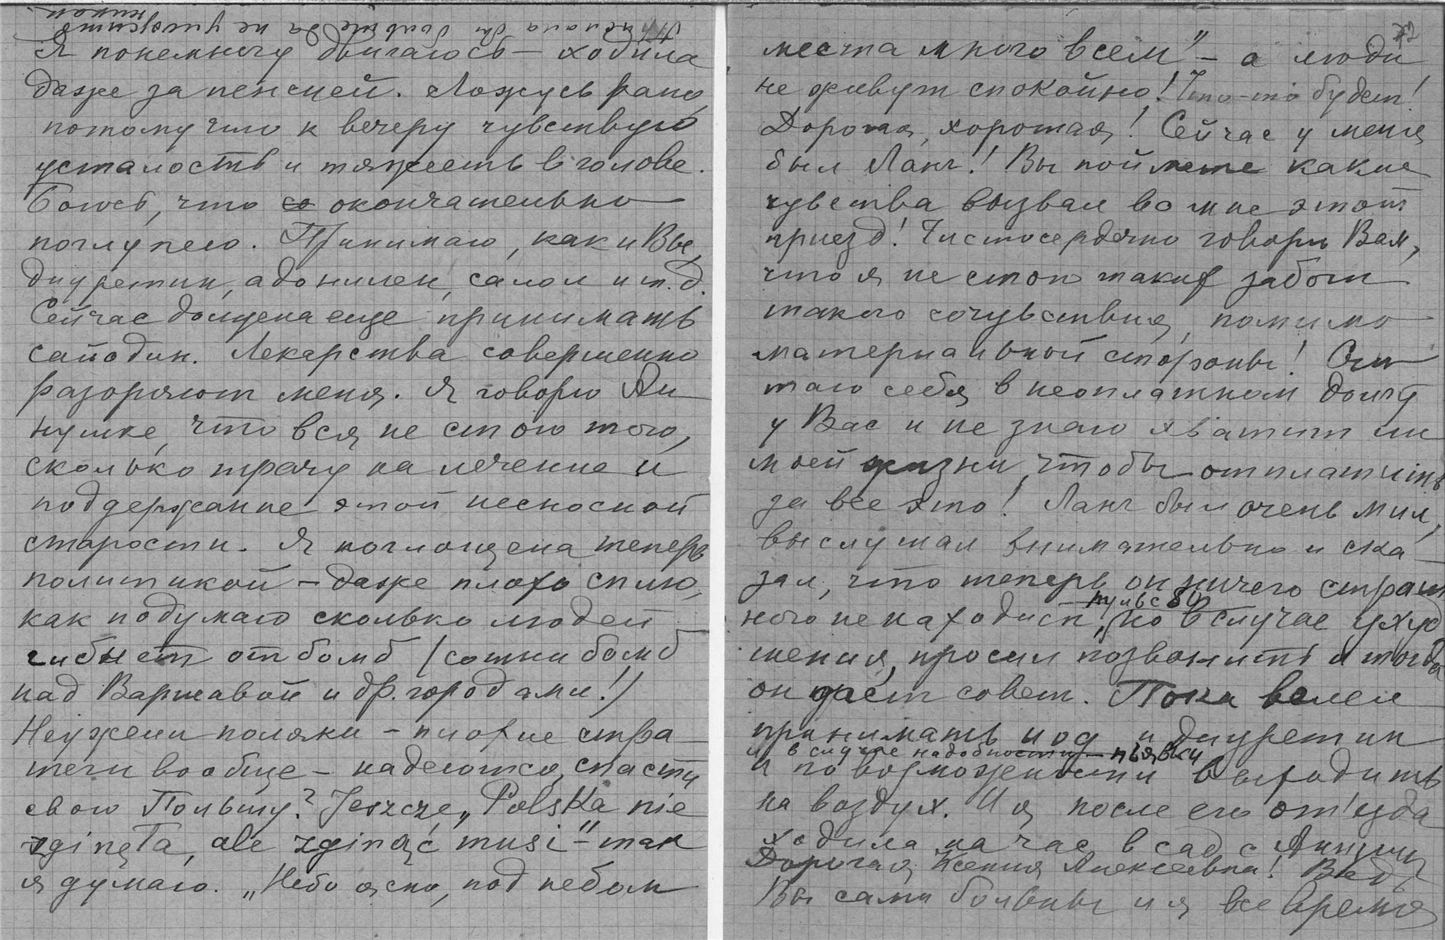 Я понемногу двигаюсь — ходила
даже за пенсией. Ложусь рано,
потому что к вечеру чувствую
усталость и тяжесть в голове.
Боюсь, что окончательно
поглупею. Принимаю, как и Вы,
диуретин, адонилен, салол и т.д.
Сейчас должна еще принимать
сайодин. Лекарства совершенно
разоряют меня. Я говорю Ан
нушке, что вся не стою того,
сколько трачу на лечение и
поддержание этой несносной
старости. Я поглощена теперь
политикой — даже плохо сплю,
как подумаю сколько людей
гибнет от бомб (сотни бомб
над Варшавой и др. городами!)
Неужели поляки — плохие стра
теги вообще — надеются спасти
свою Польшу? Jeszcze „Polska nie
zginęła, ale zginąć musi" — так
я думаю. „Небо ясно, под небом
места много всем" — а люди
не живут спокойно! Что-то будет!
Дорогая, хорошая! Сейчас у меня
был Ланг! Вы поймете какие
чувства вызвал во мне этот
приезд! Чистосердечно говорю Вам,
что я не стою таких забот
такого сочувствия, помимо
материальной стороны! Счи
таю себя в неоплатном долгу
у Вас и не знаю хватит ли
моей жизни, чтобы отплатить
за все это! Ланг был очень мил,
выслушал внимательно и ска
зал, что теперь он ничего страш
пульс 84
ного не находит, но в случае ухуд
шения, просил позвонить и тогда
он даёт совет. Пока велел
принимать иод и диуретин
и в случае надобности — пьявки
и по возможности выходить
на воздух. И я после его от'езда
ходила на час в сад с
Дорогая Ксения Алексеевна! Ведь
Вы сами больны и я все время